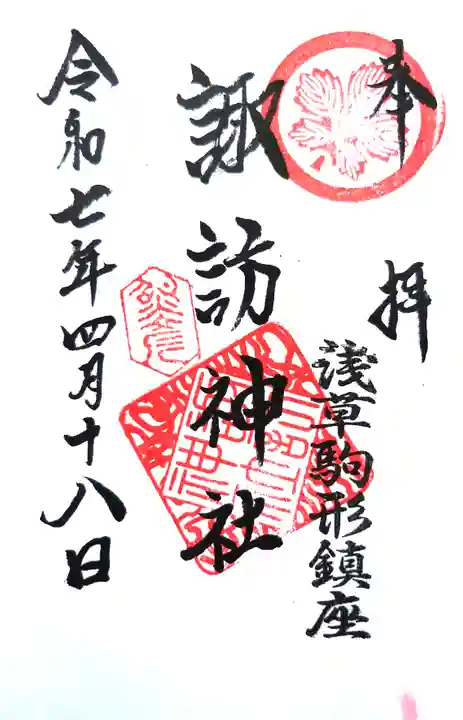 奉拝
浅草駒形鎮座
諏訪神社
令和七年四月十八日